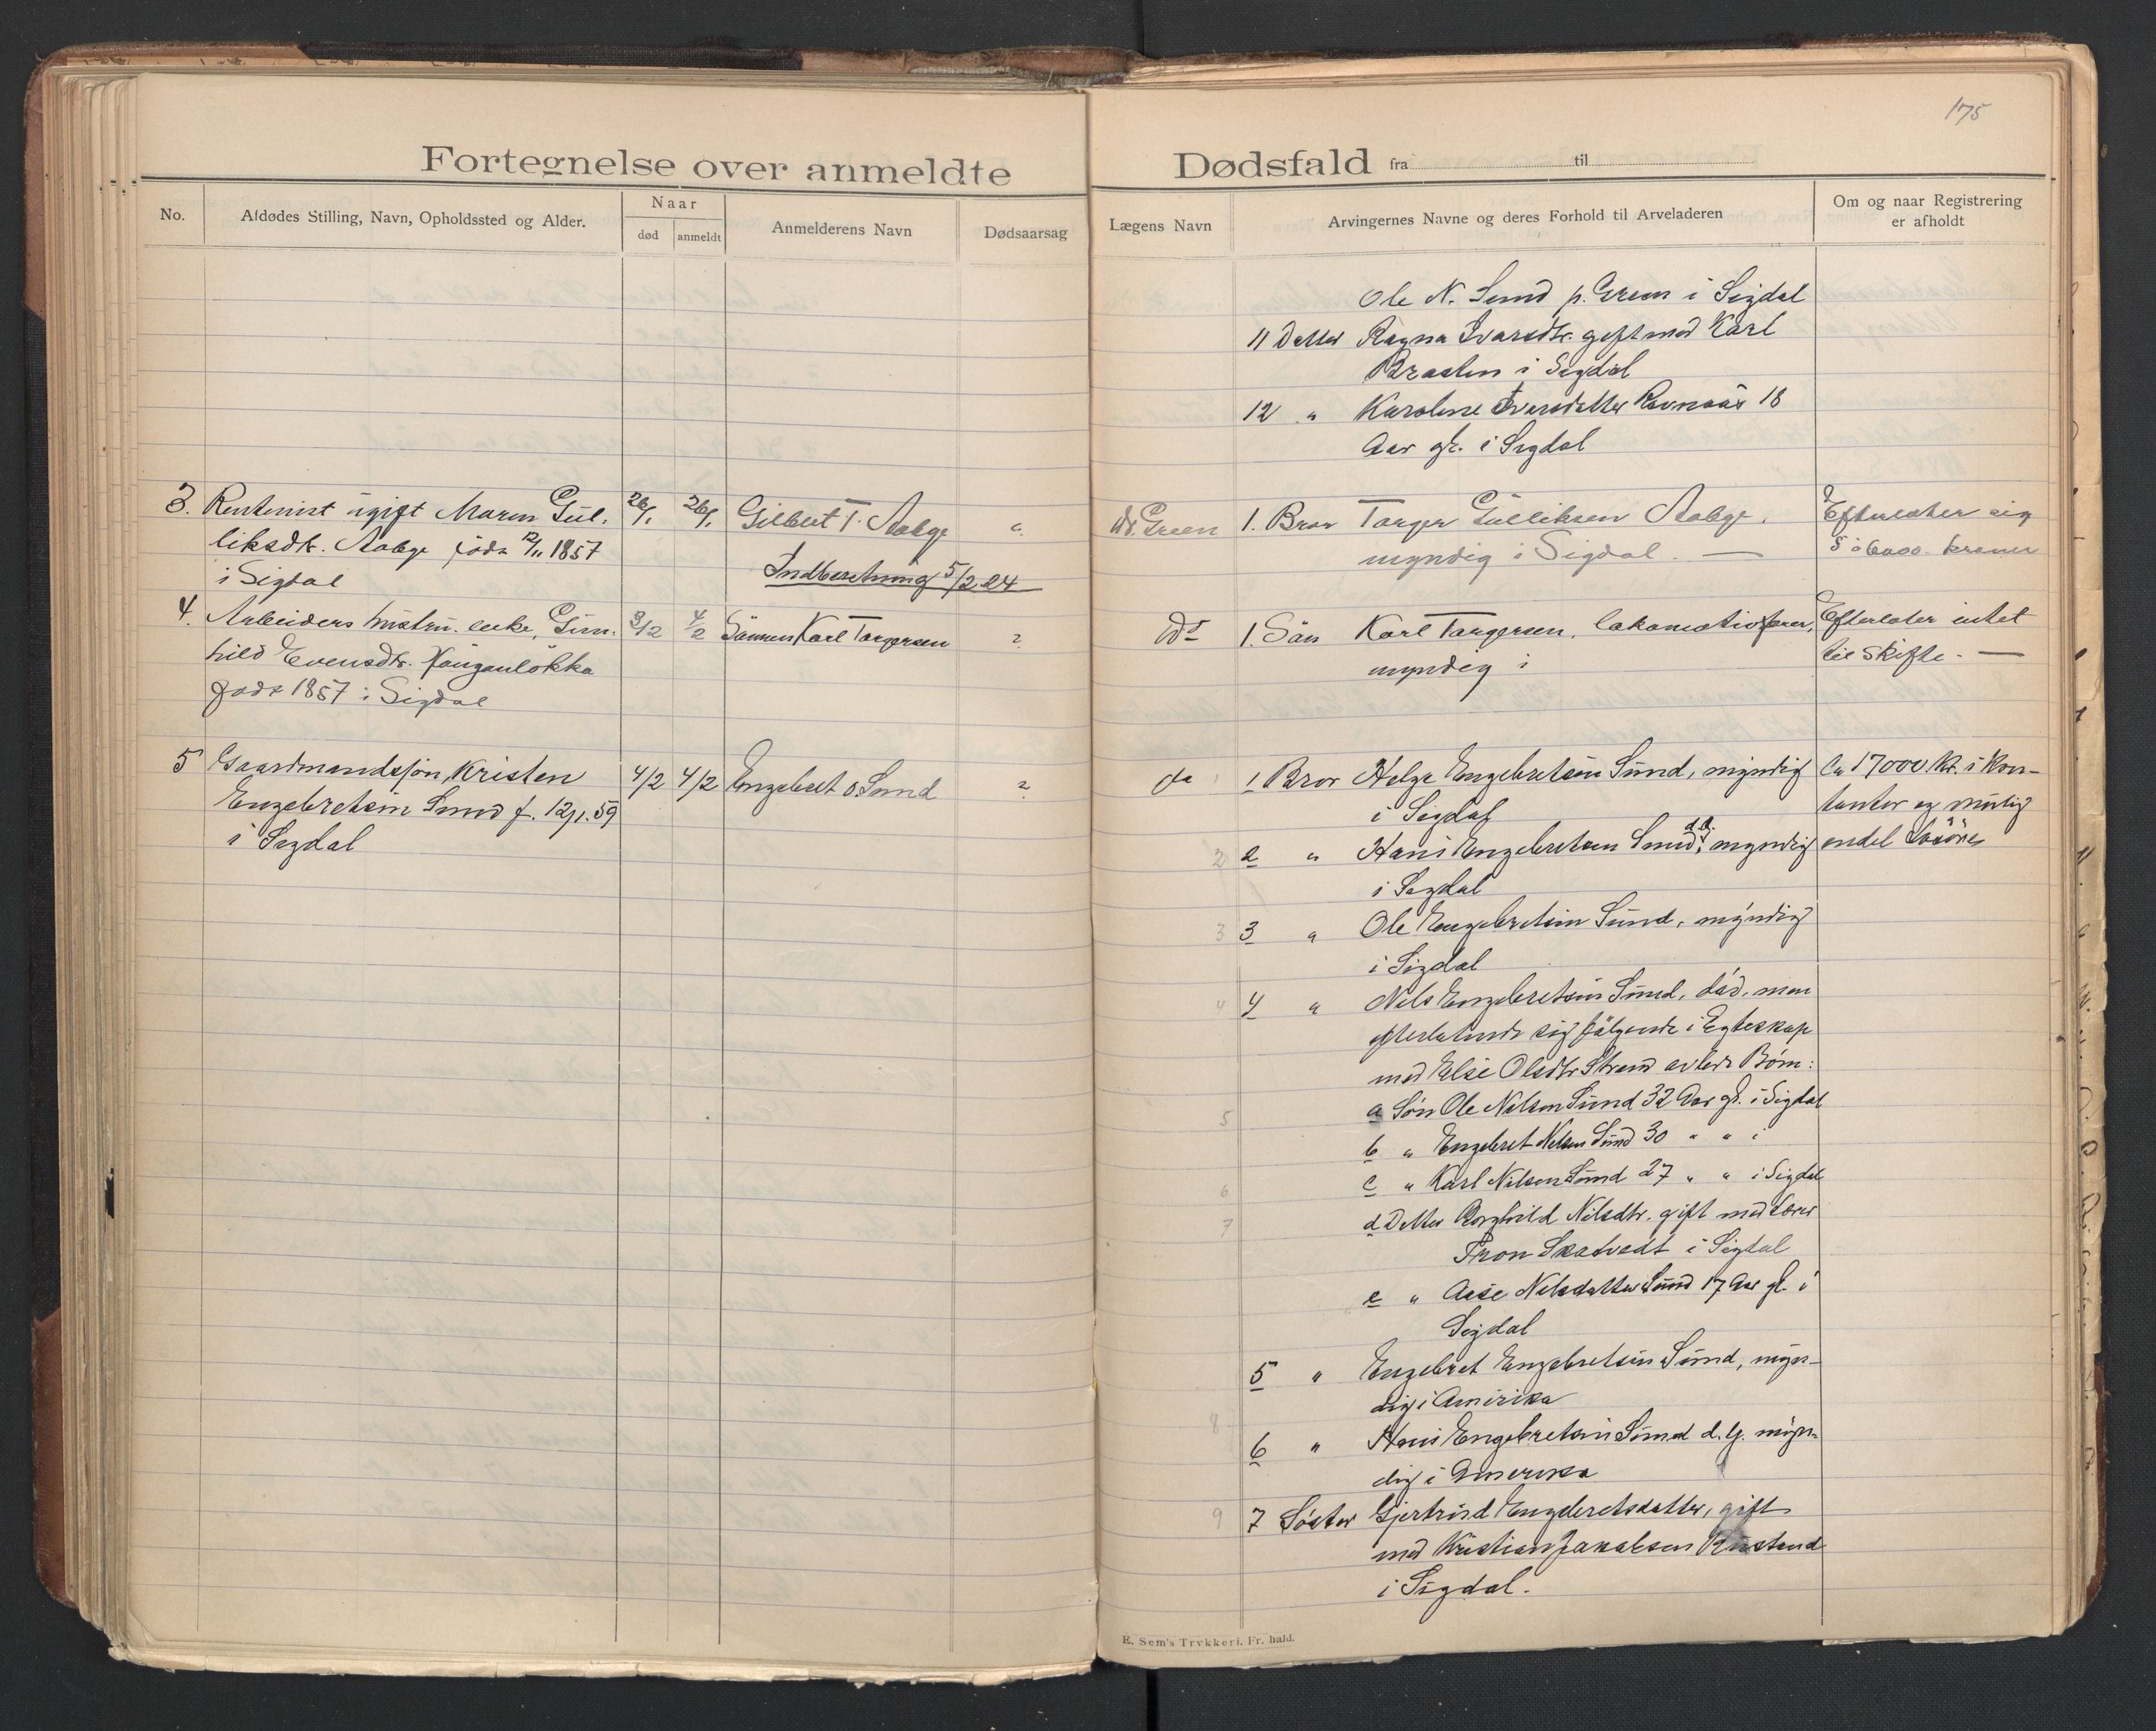 175
Fortegnelse over anmeldte Dødsfald fra til
No.
Afdødes Stilling, Navn, Opholdssted og Alder.
Naar
død
anmeldt
Anmelderens Navn
Dødsaarsag
Lægens Navn
Arvingernes Navne og deres Forhold til Arveladeren
Om og naar Registrering
er afholdt
Ole N. Sund p. Green i Sigdal
11 Datter Ragna Ivarsdtr. gift med Karl
Braaten i Sigdal
12 " Karoline Ivarsdatter Ravnaas 18
Aar gl. i Sigdal
3. Rentenist ugift Maren Gul-
liksdtr. Aabge føde 12/11 1857
i Sigdal
26/1
26/1
Gilbert T. Aabge
Indberetning 5/2 24
?
Dr. Green
1. Bror Torger Gulliksen Aabge.
myndig i Sigdal. —
Efterlater sig
5 à 6000 kroner
4. Arbeiders hustru. enke, Gun-
hild Evensdtr. Haugenløkka
født 1857 i Sigdal
3/2
4/2
Sønnen Karl Torgersen
?
Do
1. Søn Karl Torgersen, lokomotivfører,
myndig i
Efterlater intet
til skifte. —
5 Gaardmandssøn Kristen
Engebretsen Sund f. 12/1. 59
i Sigdal
4/2
4/2
Engebret O Sund
?
do
1 1 Bror Helge Engebretsen Sund, myndig
i Sigdal
Ca 17000 Kr. i kon-
tanter og mulig
endel Løsøre
2 2 " Hans Engebretsen Sund d.æ., myndig
i Sigdal
3 3 " Ole Engebretsen Sund, myndig
i Sigdal
4 4 " Nils Engebretsen Sund, død, men
efterlatende sig følgende i Egteskap
med Else Olsdtr Strand avlede Børn:
5 a Søn Ole Nilsen Sund 32 Aar gl. i Sigdal
b " Engebret Nilsen Sund 30 " " i
6 c " Karl Nilsen Sund 27 " " i Sigdal
7 d Datter Borghild Nilsdtr. gift med Lærer
Tron Skatvedt i Sigdal
e " Aase Nilsdatter Sund 17 Aar gl. i
Sigdal
5 " Engebret Engebretsen Sund, myn-
dig i Amerika
8 6 " Hans Engebretsen Sund d.y. myn-
dig i Amerika
9 7 Søster Gjertrud Engebretsdatter, gift
med Kristian Jakobsen Rustand
i Sigdal.
E. Sem's Trykkeri. Fr. hald.